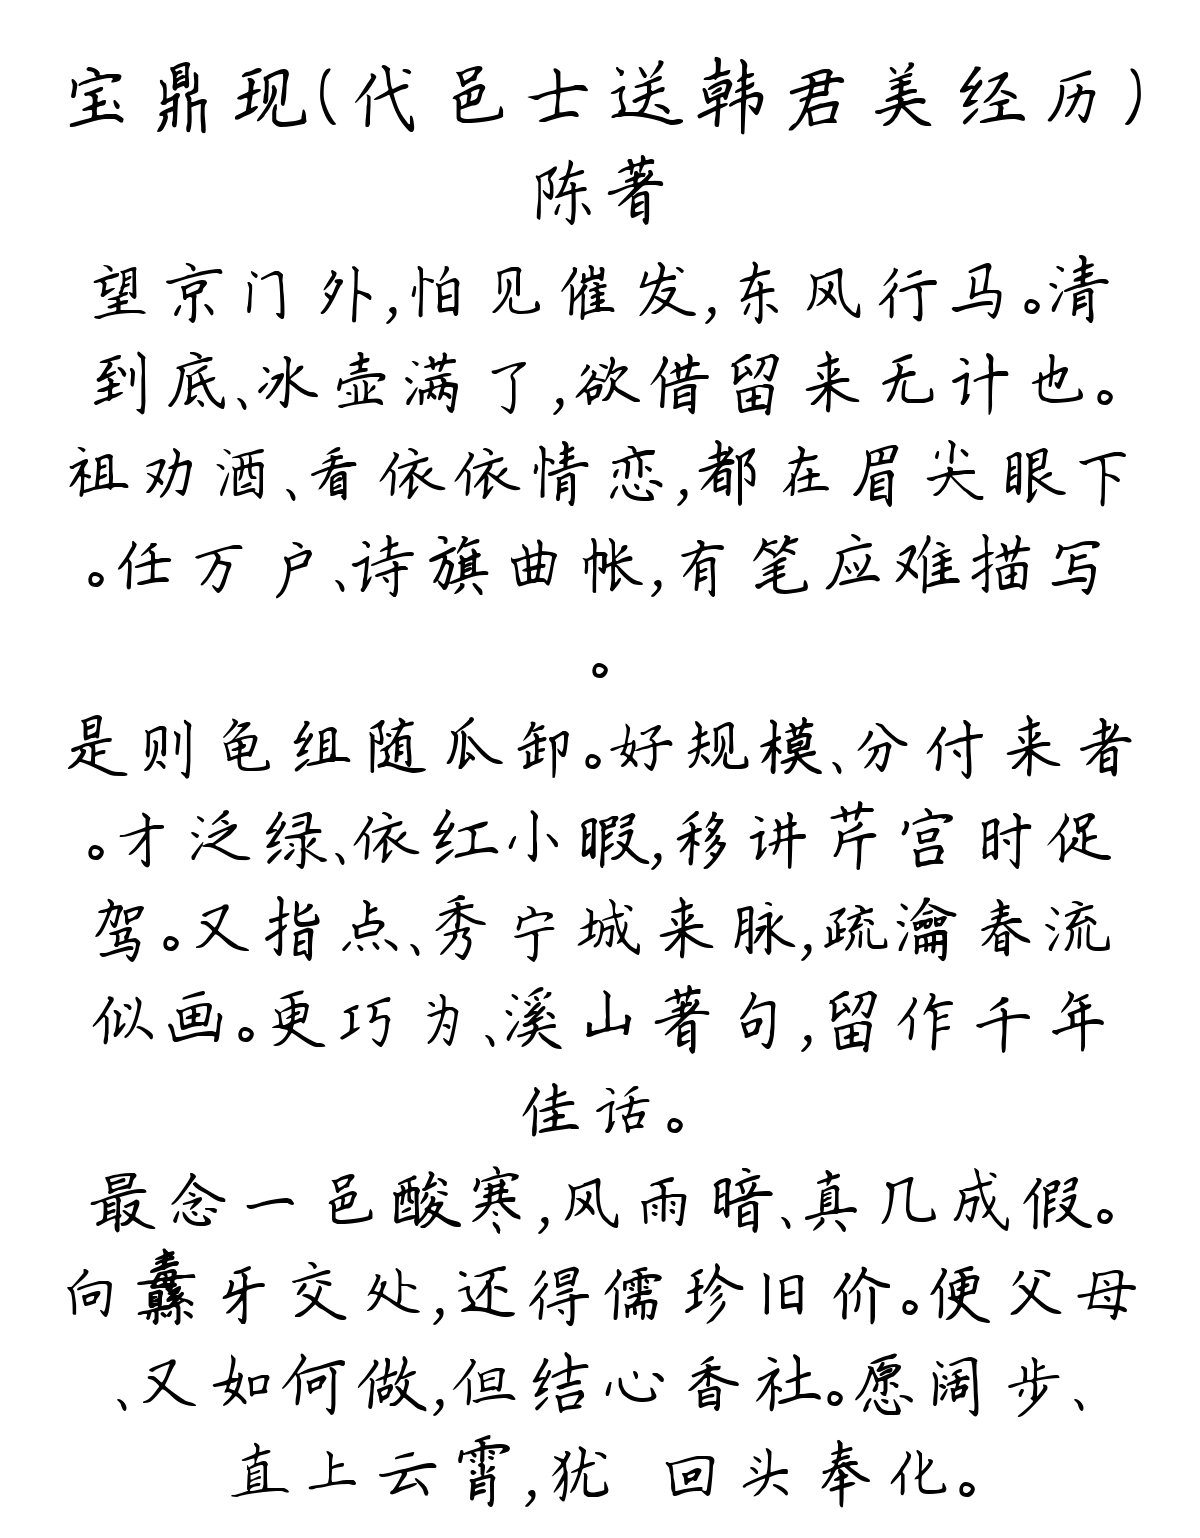 宝鼎现(代邑士送韩君美经历)
陈著
望京门外,怕见催发,东风行马。清
到底、冰壶满了,欲借留来无计也。
祖劝酒、看依依情恋,都在眉尖眼下
。任万户、诗旗曲帐,有笔应难描写
。
是则龟组随瓜卸。好规模、分付来者
。才泛绿、依红小暇,移讲芹宫时促
驾。又指点、秀宁城来脉,疏瀹春流
似画。更巧为、溪山著句,留作千年
佳话。
最念一邑酸寒,风雨暗、真几成假。
向纛牙交处,还得儒珍旧价。便父母
、又如何做,但结心香社。愿阔步、
直上云霄,犹 回头奉化。